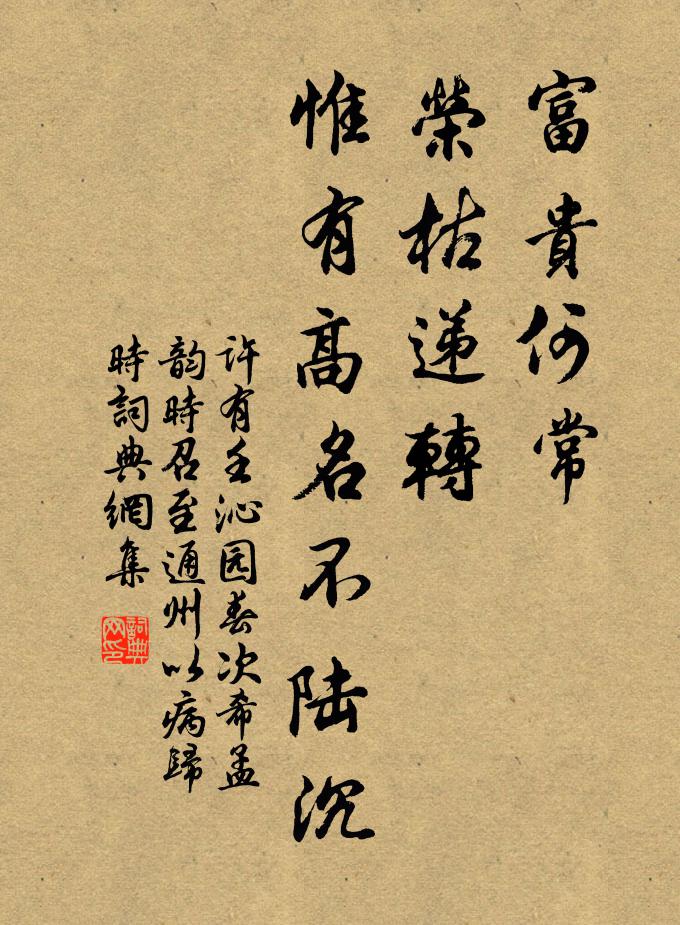 富貴何常
榮枯递轉
惟有高名不陆沉
许有壬沁园春次希孟
韵時召至通州以病歸
時詞典網集
詞典
网印